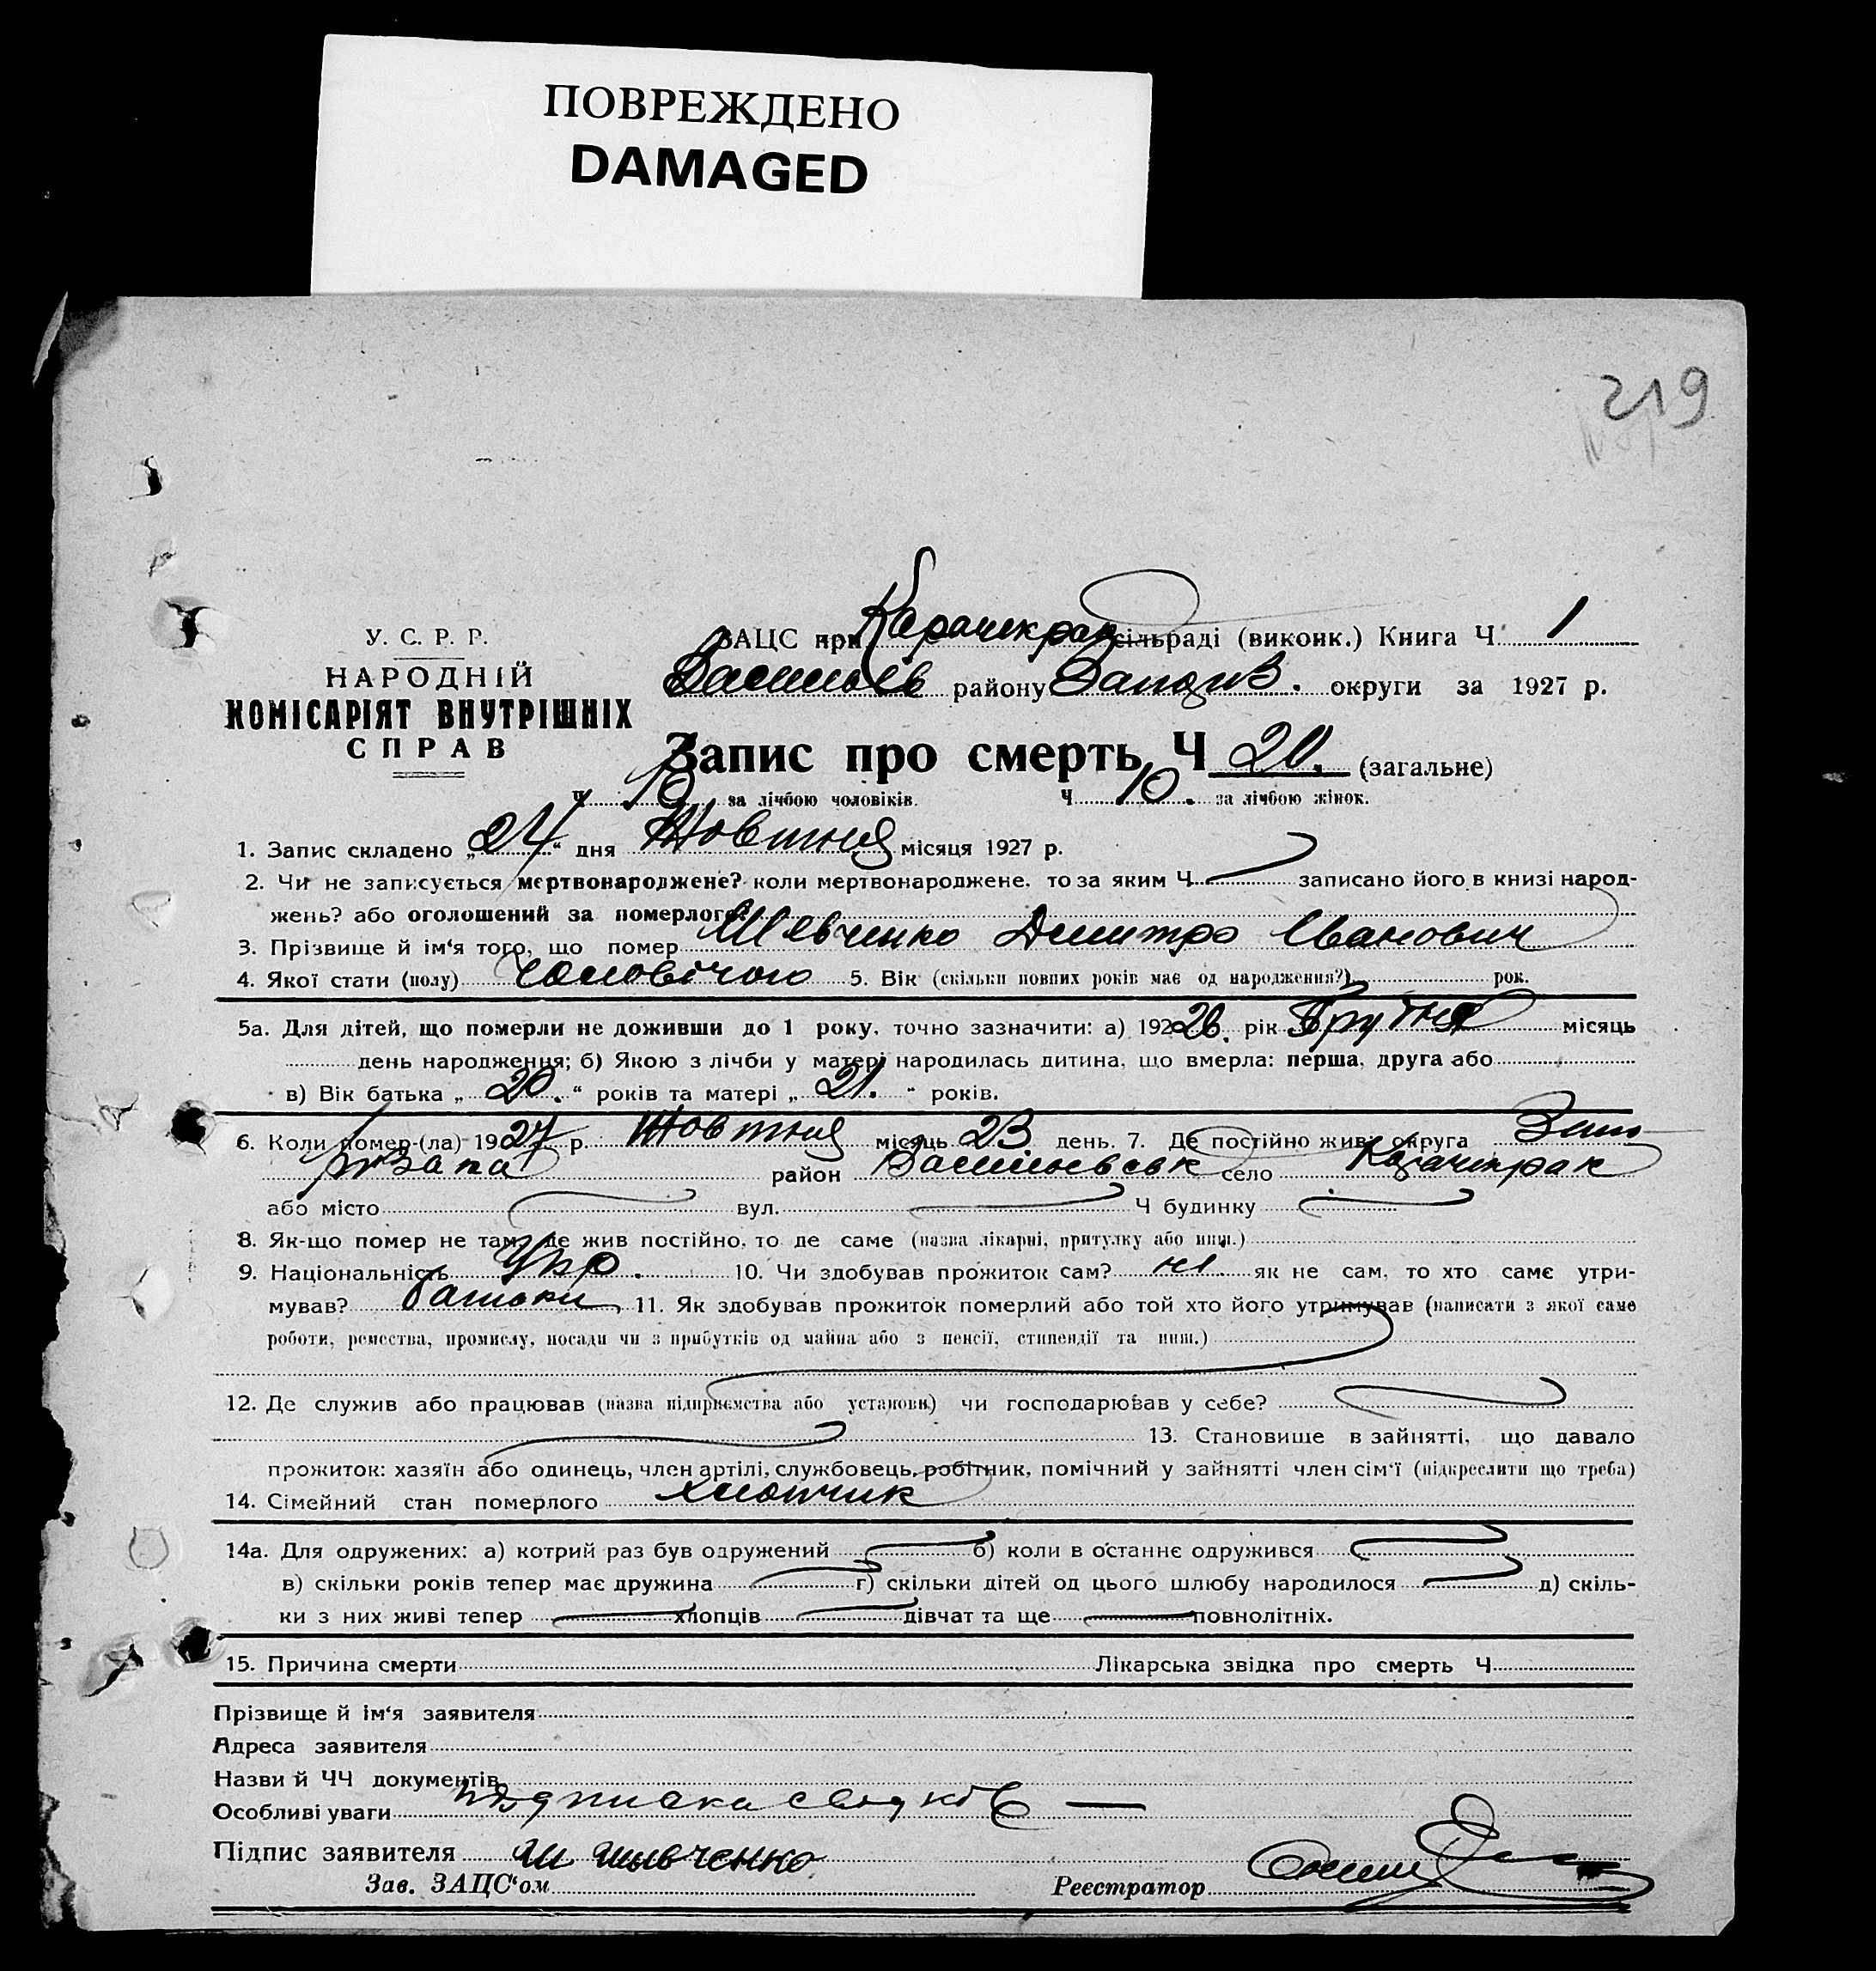 ПОВРЕЖДЕНО
DAMAGED
219
У. С. Р. Р.
НАРОДНІЙ
КОМІСАРІЯТ ВНУТРІШНІХ
СПРАВ
ЗАЦС при Карачекрак сільраді (виконк.) Книга Ч 1
Васильев району Запоріз. округи за 1927 р.
Запис про смерть Ч 20. (загальне)
Ч 10 за лічбою чоловіків. Ч 10. за лічбою жінок.
1. Запис складено „24“ дня Жовтня місяця 1927 р.
2. Чи не записується мертвонароджене? коли мертвонароджене, то за яким Ч записано його в книзі народ-
жень? або оголошений за померлого?
3. Прізвище й ім‘я того, що помер Шевченко Дмитро Іванович
4. Якої стати (полу) чоловічого 5. Вік (скільки повних років має од народження?) рок.
5а. Для дітей, що померли не доживши до 1 року, точно зазначити: а) 192 26. рік Грудня місяць
день народження; б) Якою з лічби у матері народилась дитина, що вмерла: перша, друга або
в) Вік батька „20.“ років та матері „21.“ років.
6. Коли помер-(ла) 1927 р. Жовтня місяць 23 день. 7. Де постійно жив: округа Запо-
ріжжа район Васильевськ село Карачекрак
або місто вул. Ч будинку
8. Як-що помер не там, де жив постійно, то де саме (назва лікарні, притулку або инш.)
9. Національність Укр. 10. Чи здобував прожиток сам? ні як не сам, то хто саме утри-
мував? батьки 11. Як здобував прожиток померлий або той хто його утримував (написати з якої саме
роботи, ремества, промислу, посади чи з прибутків од майна або з пенсії, стипендії та инш.)
12. Де служив або працював (назва підприємства або установи) чи господарював у себе?
13. Становище в зайнятті, що давало
прожиток: хазяїн або одинець, член артілі, службовець, робітник, помічний у зайнятті член сім‘ї (підкреслити що треба)
14. Сімейний стан померлого хлопчик
14а. Для одружених: а) котрий раз був одружений б) коли в останнє одружився
в) скільки років тепер має дружина г) скільки дітей од цього шлюбу народилося д) скіль-
ки з них живі тепер хлопців дівчат та ще повнолітніх.
15. Причина смерти Лікарська звідка про смерть Ч
Прізвище й ім‘я заявителя
Адреса заявителя
Назви й ЧЧ документів
Особливі уваги підписка свідків —
Підпис заявителя шывченко
Зав. ЗАЦС‘ом Реєстратор